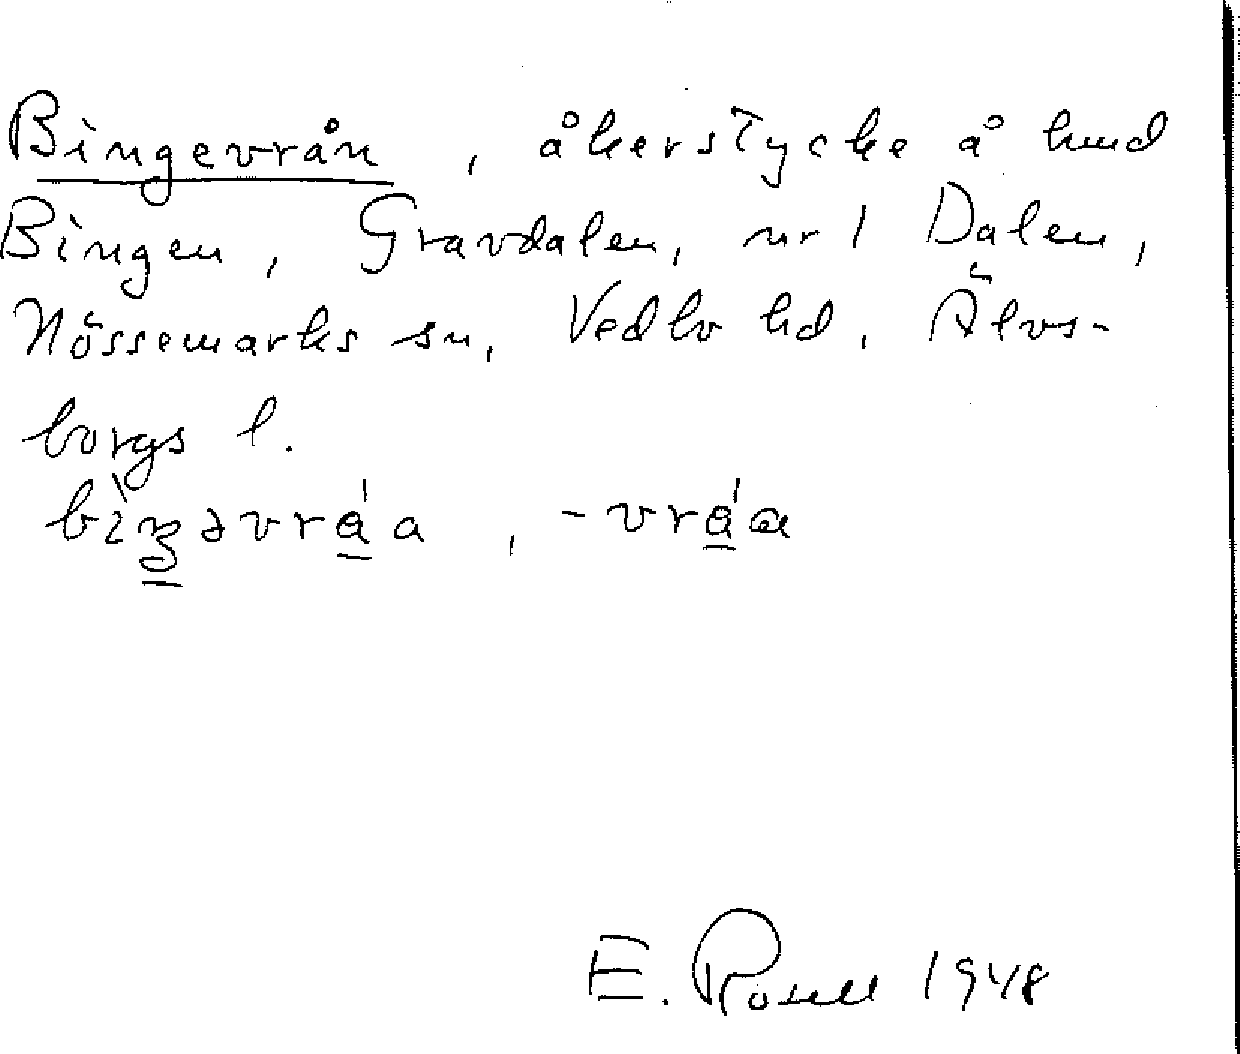 Bingevrån, åkerstycke å hmd
Bingen, Gravdalen, nr 1 Dalen,
Nössemarks sn, Vedbo hd, Älvs-
borgs l.
, -vr
E. Rosell 1948